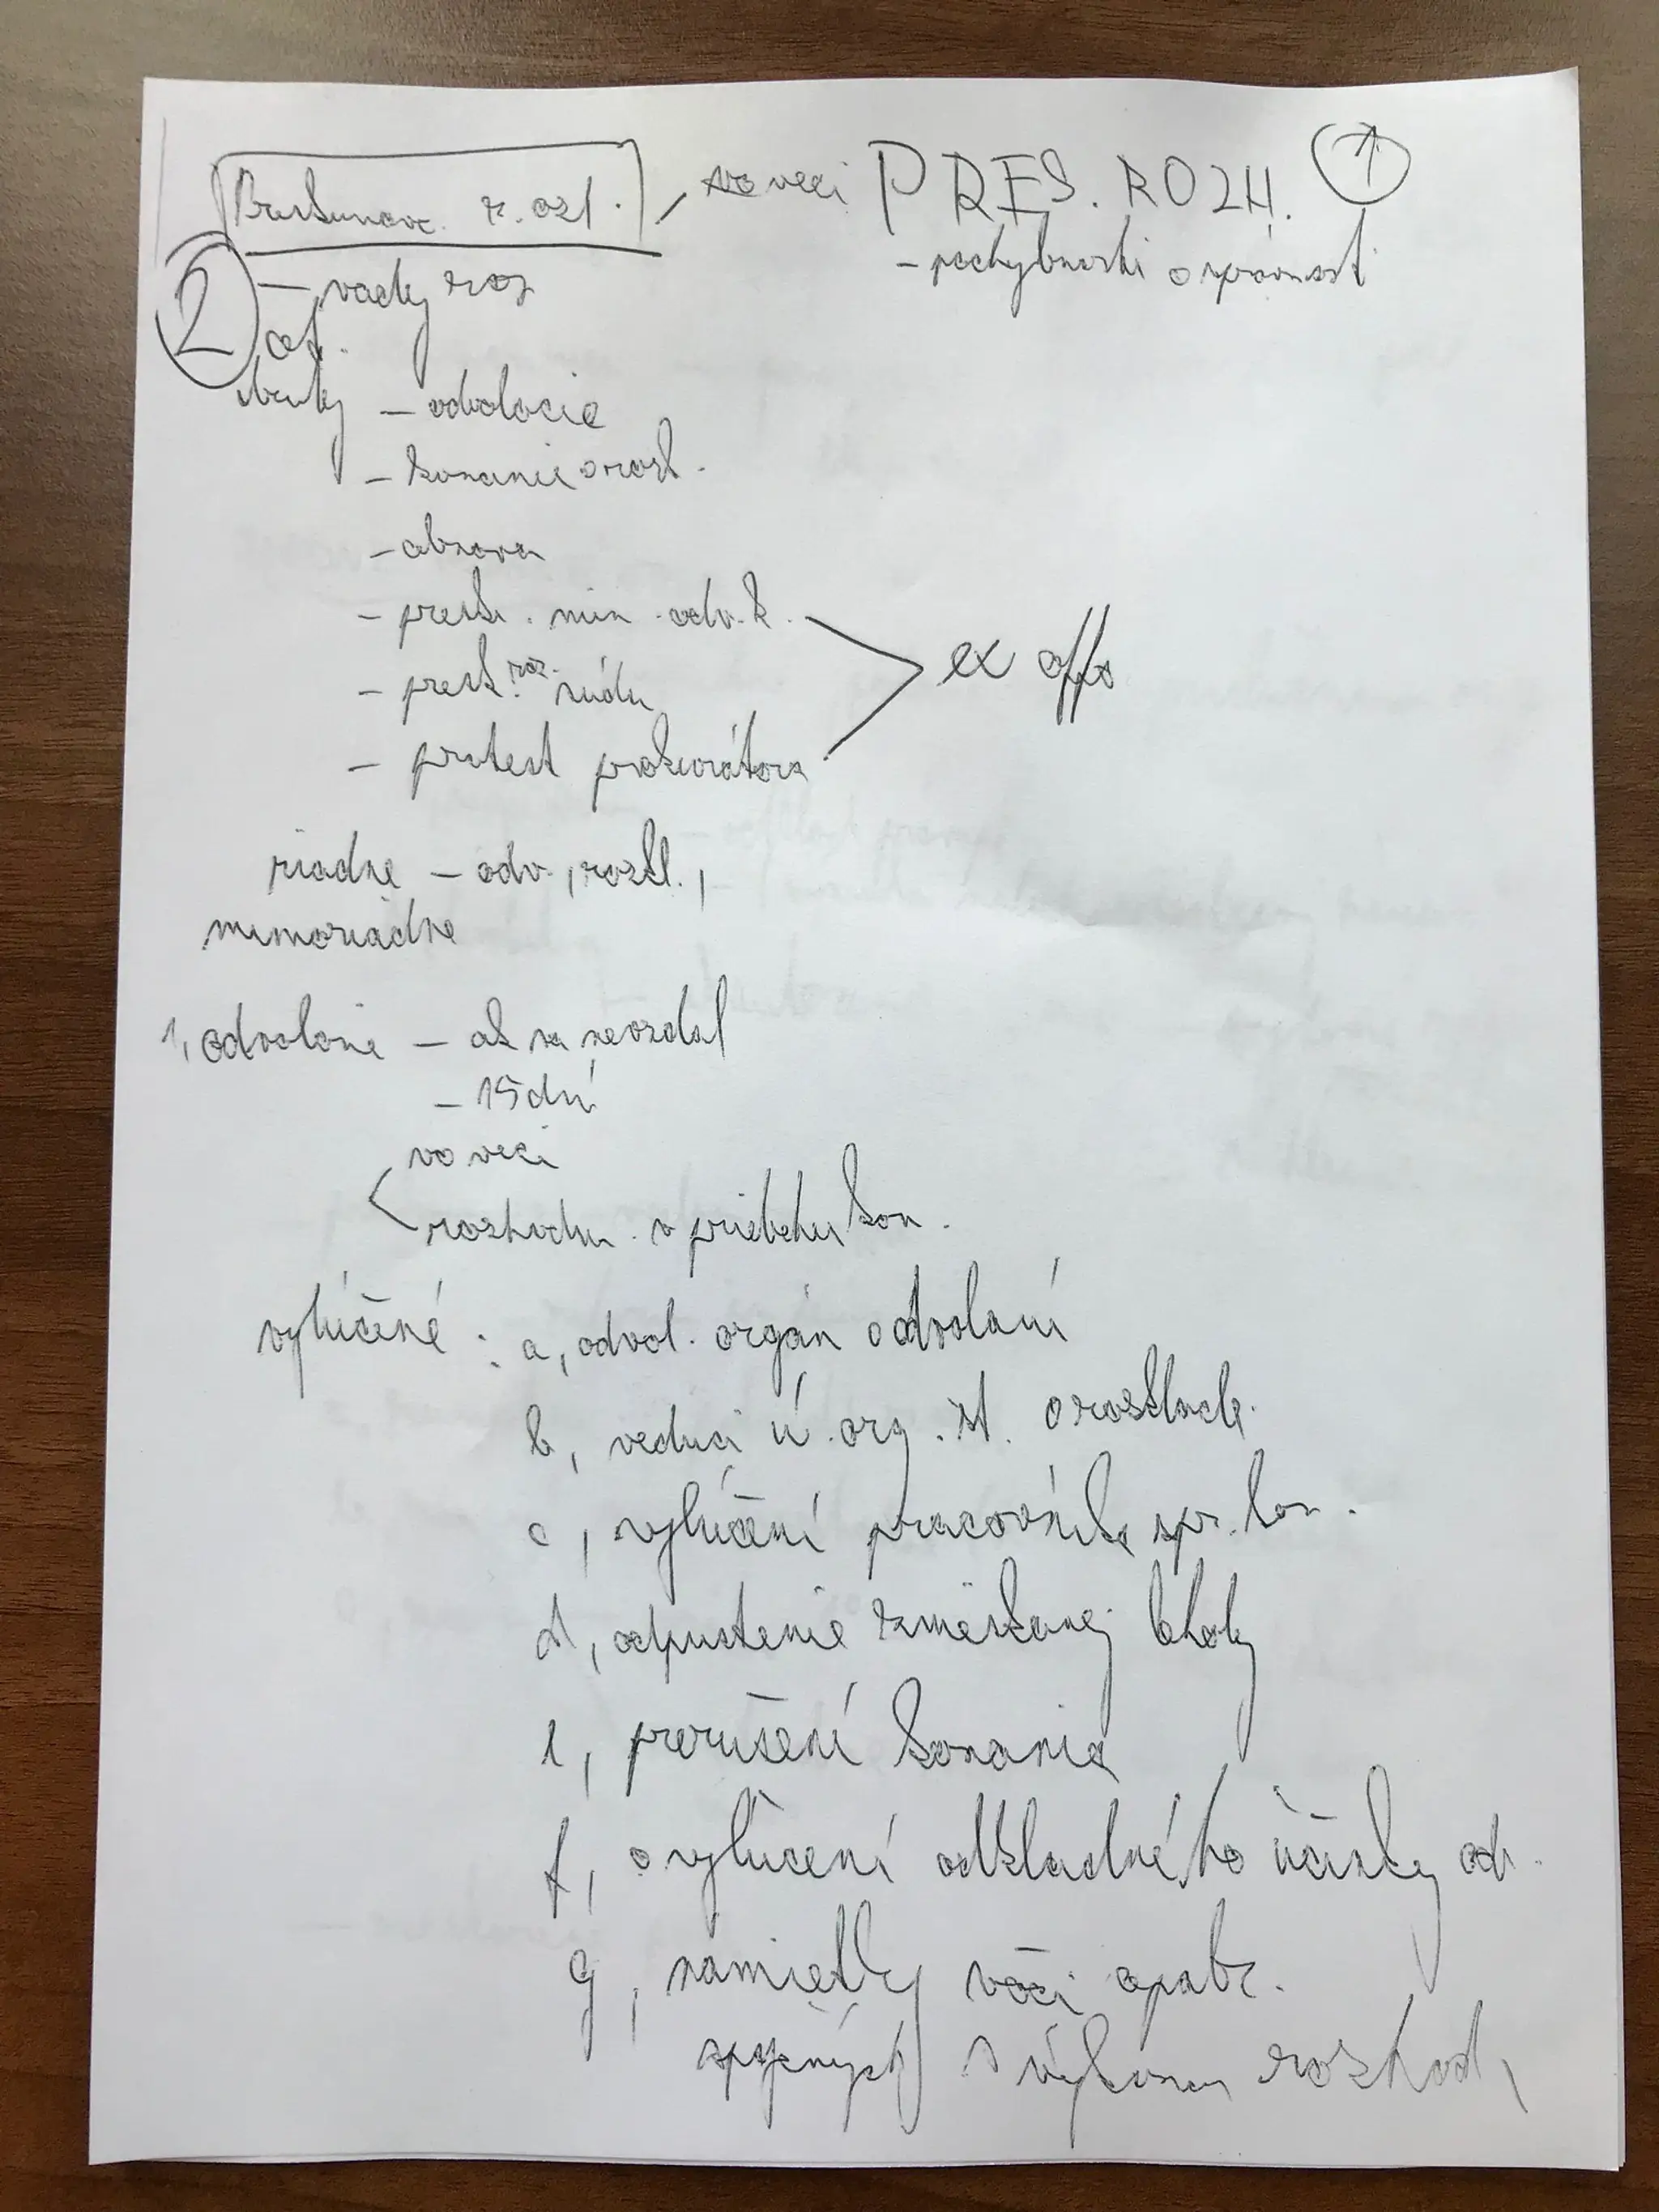 vo veci PRES. ROZH. 1
- pochybnosti o správnosti
- vady roz
2
- odvolacie
- konanie o rozk.
- obnova
- presk. mim. odv. k.
- presk. roz. súdu
- protest prokurátora
ex offo
riadne - odv., rozkl.,
mimoriadne
1, odvolanie - ak sa nevzdal
- 15 dní
vo veci
rozhodn. v priebehu kon.
vylúčené : a, odvol. orgán o odvolaní
b, vedúci ú. org. št. o rozklade
c, vylúčení pracovníka spr. kon.
d, odpustenie zmeškanej lehoty
e, prerušení konania
f, o vylúčení odkladného účinku od.
g, námietky voči opatr.
spojených s výkonom rozhod,